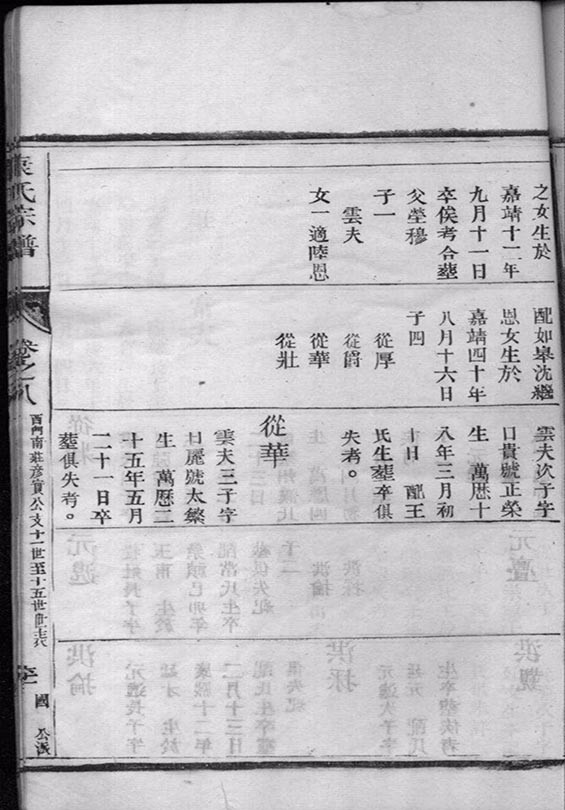 之女生於
嘉靖十二年
九月十一日
卒俟考合塟
父塋穆
子一
雲夫
女一適陸恩
配如皋沈繼
恩女生於
嘉靖四十年
八月十六日
子四
從厚
從爵
從華
從壯
雲夫次子字
口貴號正榮
生 萬歷十
八年三月初
十日 配王
氏生塟卒俱
失考。
從華
雲夫三子字
日麗號太繁
生 萬歷二
十五年五月
二十一日卒
塟俱失考。
氏宗譜
卷之八
西門南莊彥實公支十一世至十五世世表
國 公派